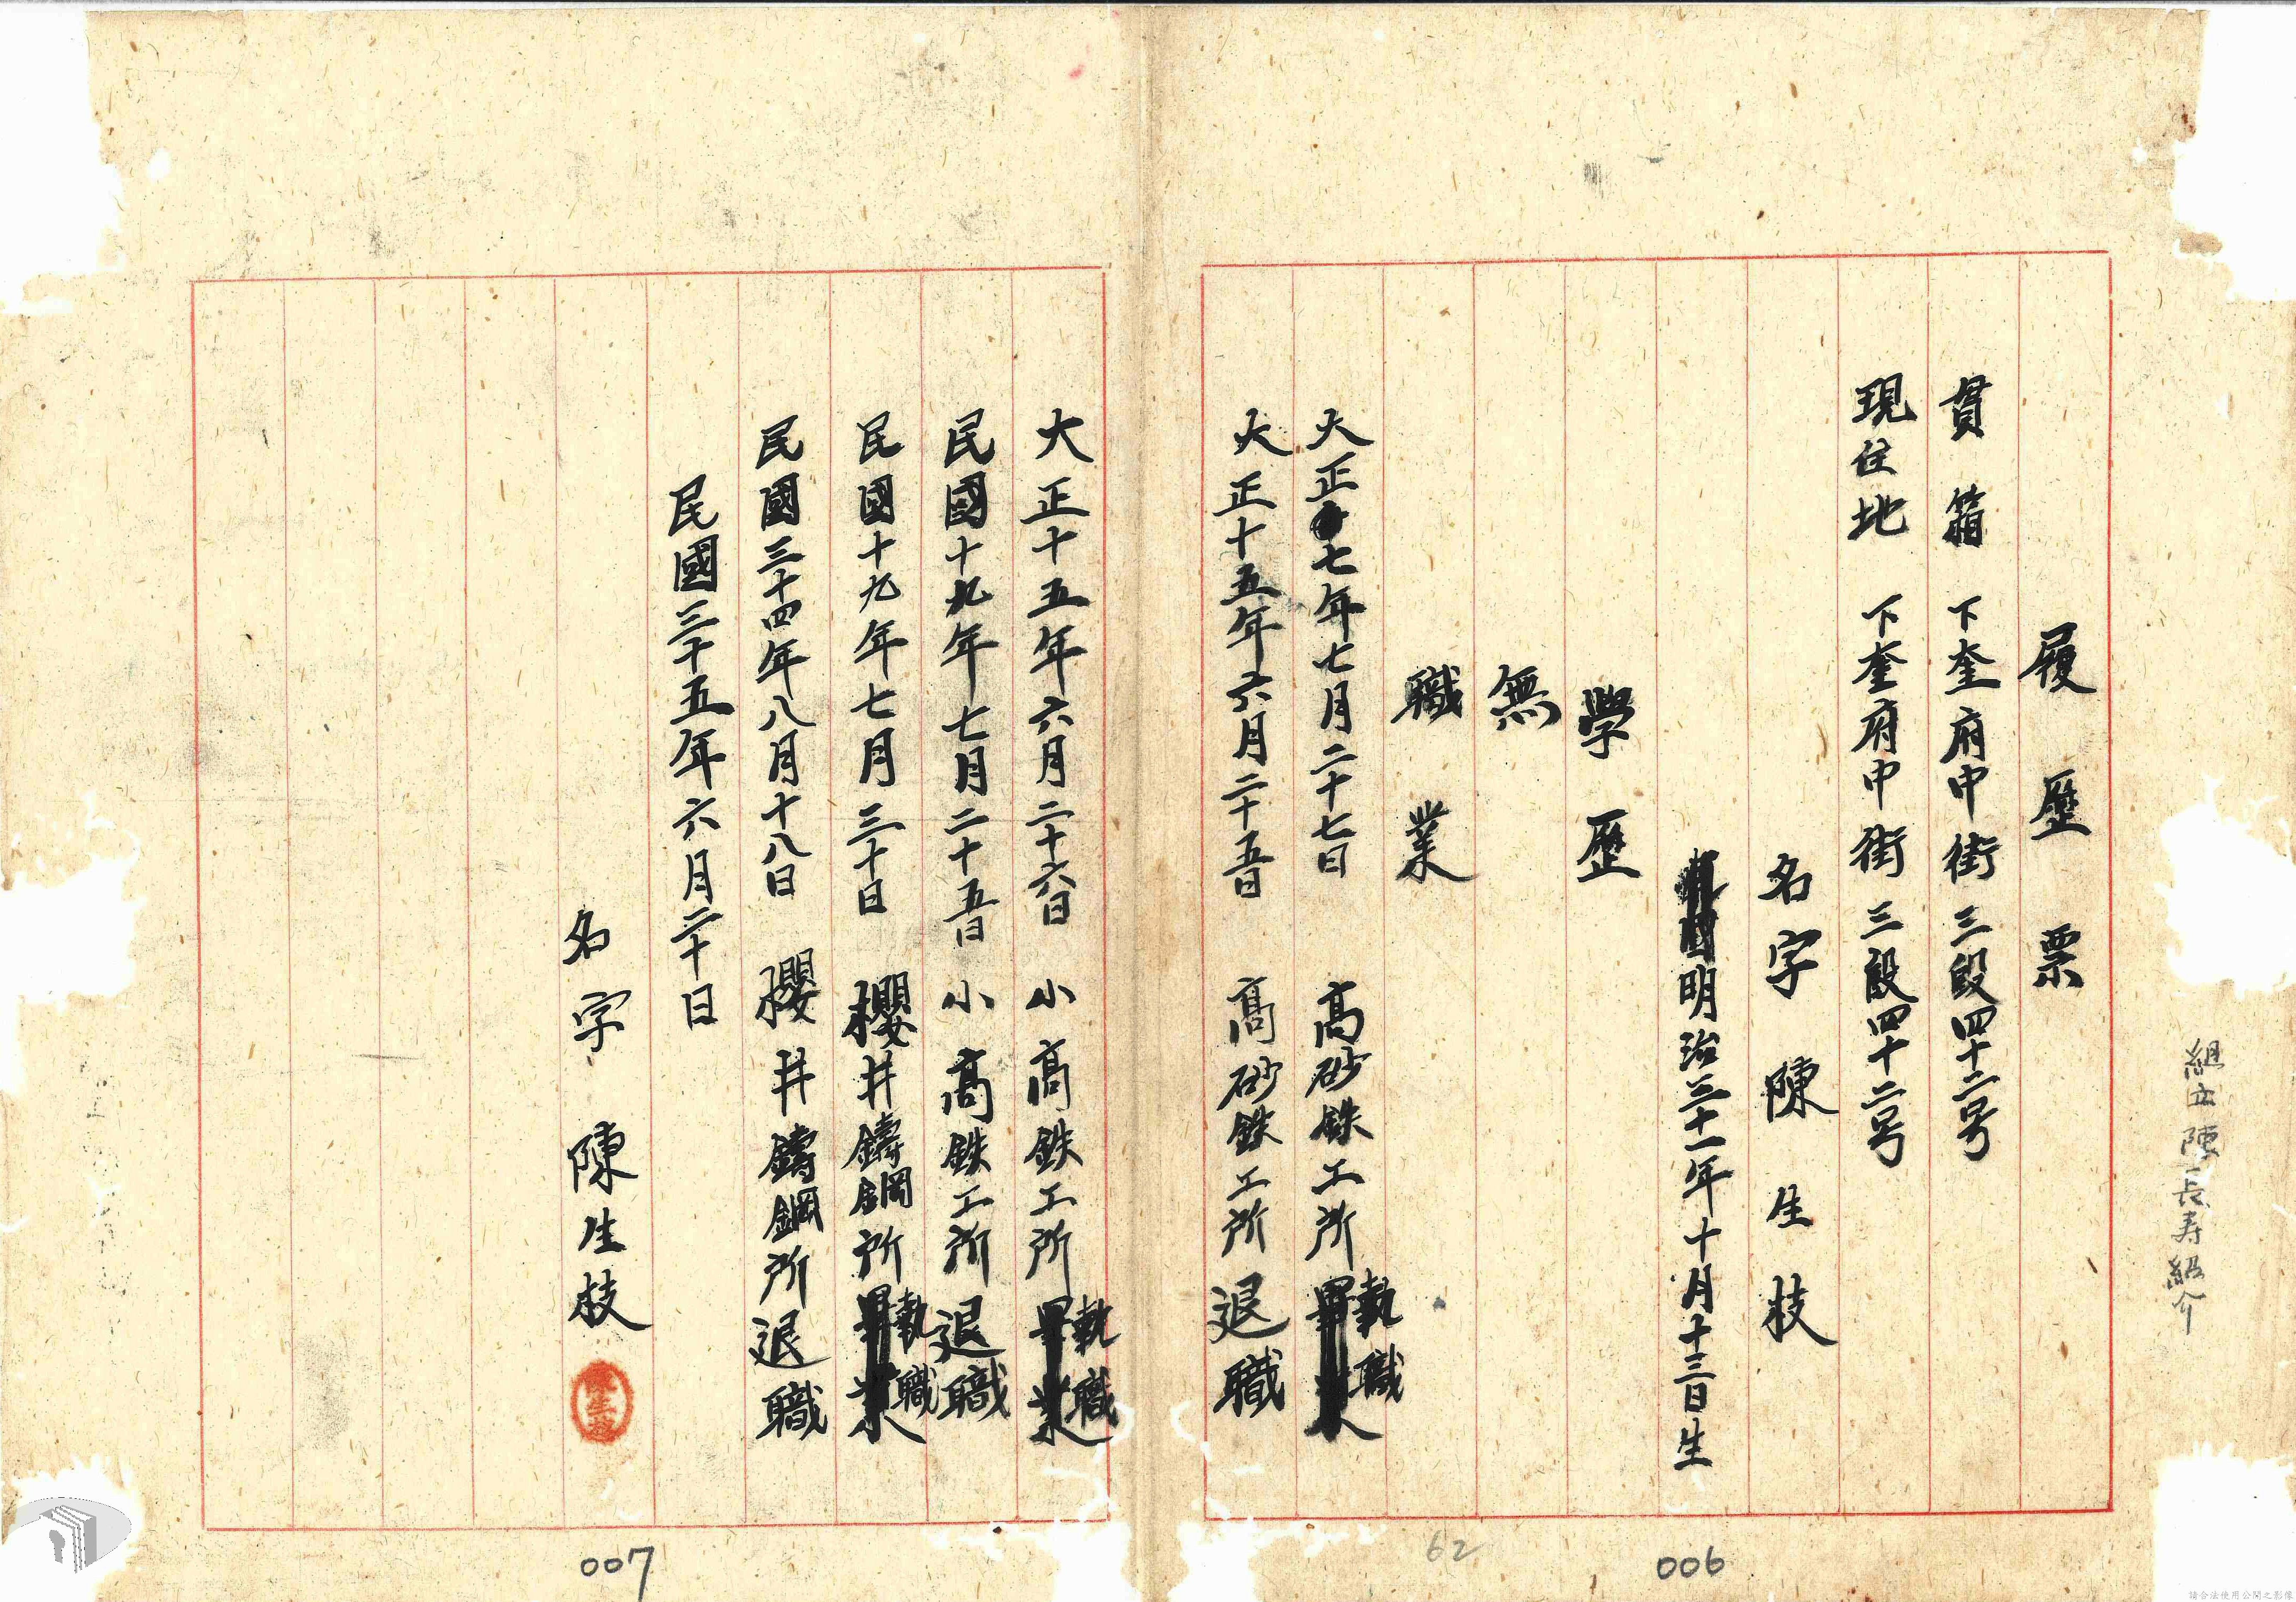 組立陳長寿紹介
履歷票
貫籍 下奎府中街三段四十二号
現住地 下奎府中街三段四十二号
名字 陳生枝
明治三十一年十月十三日生
學歷
無
職業
大正七年七月二十七日 高砂鉄工所執職
大正十五年六月二十五日 高砂鉄工所退職
大正十五年六月二十六日 小高鉄工所執職
民國十九年七月二十五日 小高鉄工所退職
民國十九年七月三十日 櫻井鑄鋼所執職
民國三十四年八月十八日 櫻井鑄鋼所退職
民國三十五年六月二十日
名字 陳生枝
62
006
007
請合法使用公開之影像